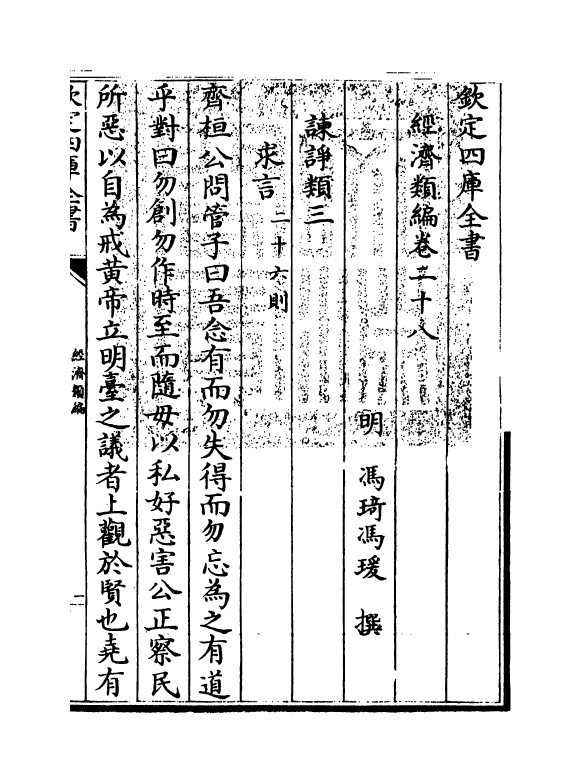 欽定四庫全書
經濟類編卷二十八
明 馮琦馮瑗 撰
諫諍類三
求言二十六則
齊桓公問管子曰吾念有而勿失得而勿忘為之有道
乎對曰勿創勿作時至而隨毋以私好惡害公正察民
所惡以自為戒黄帝立明臺之議者上觀於賢也堯有
欽定四庫全書
經濟類編